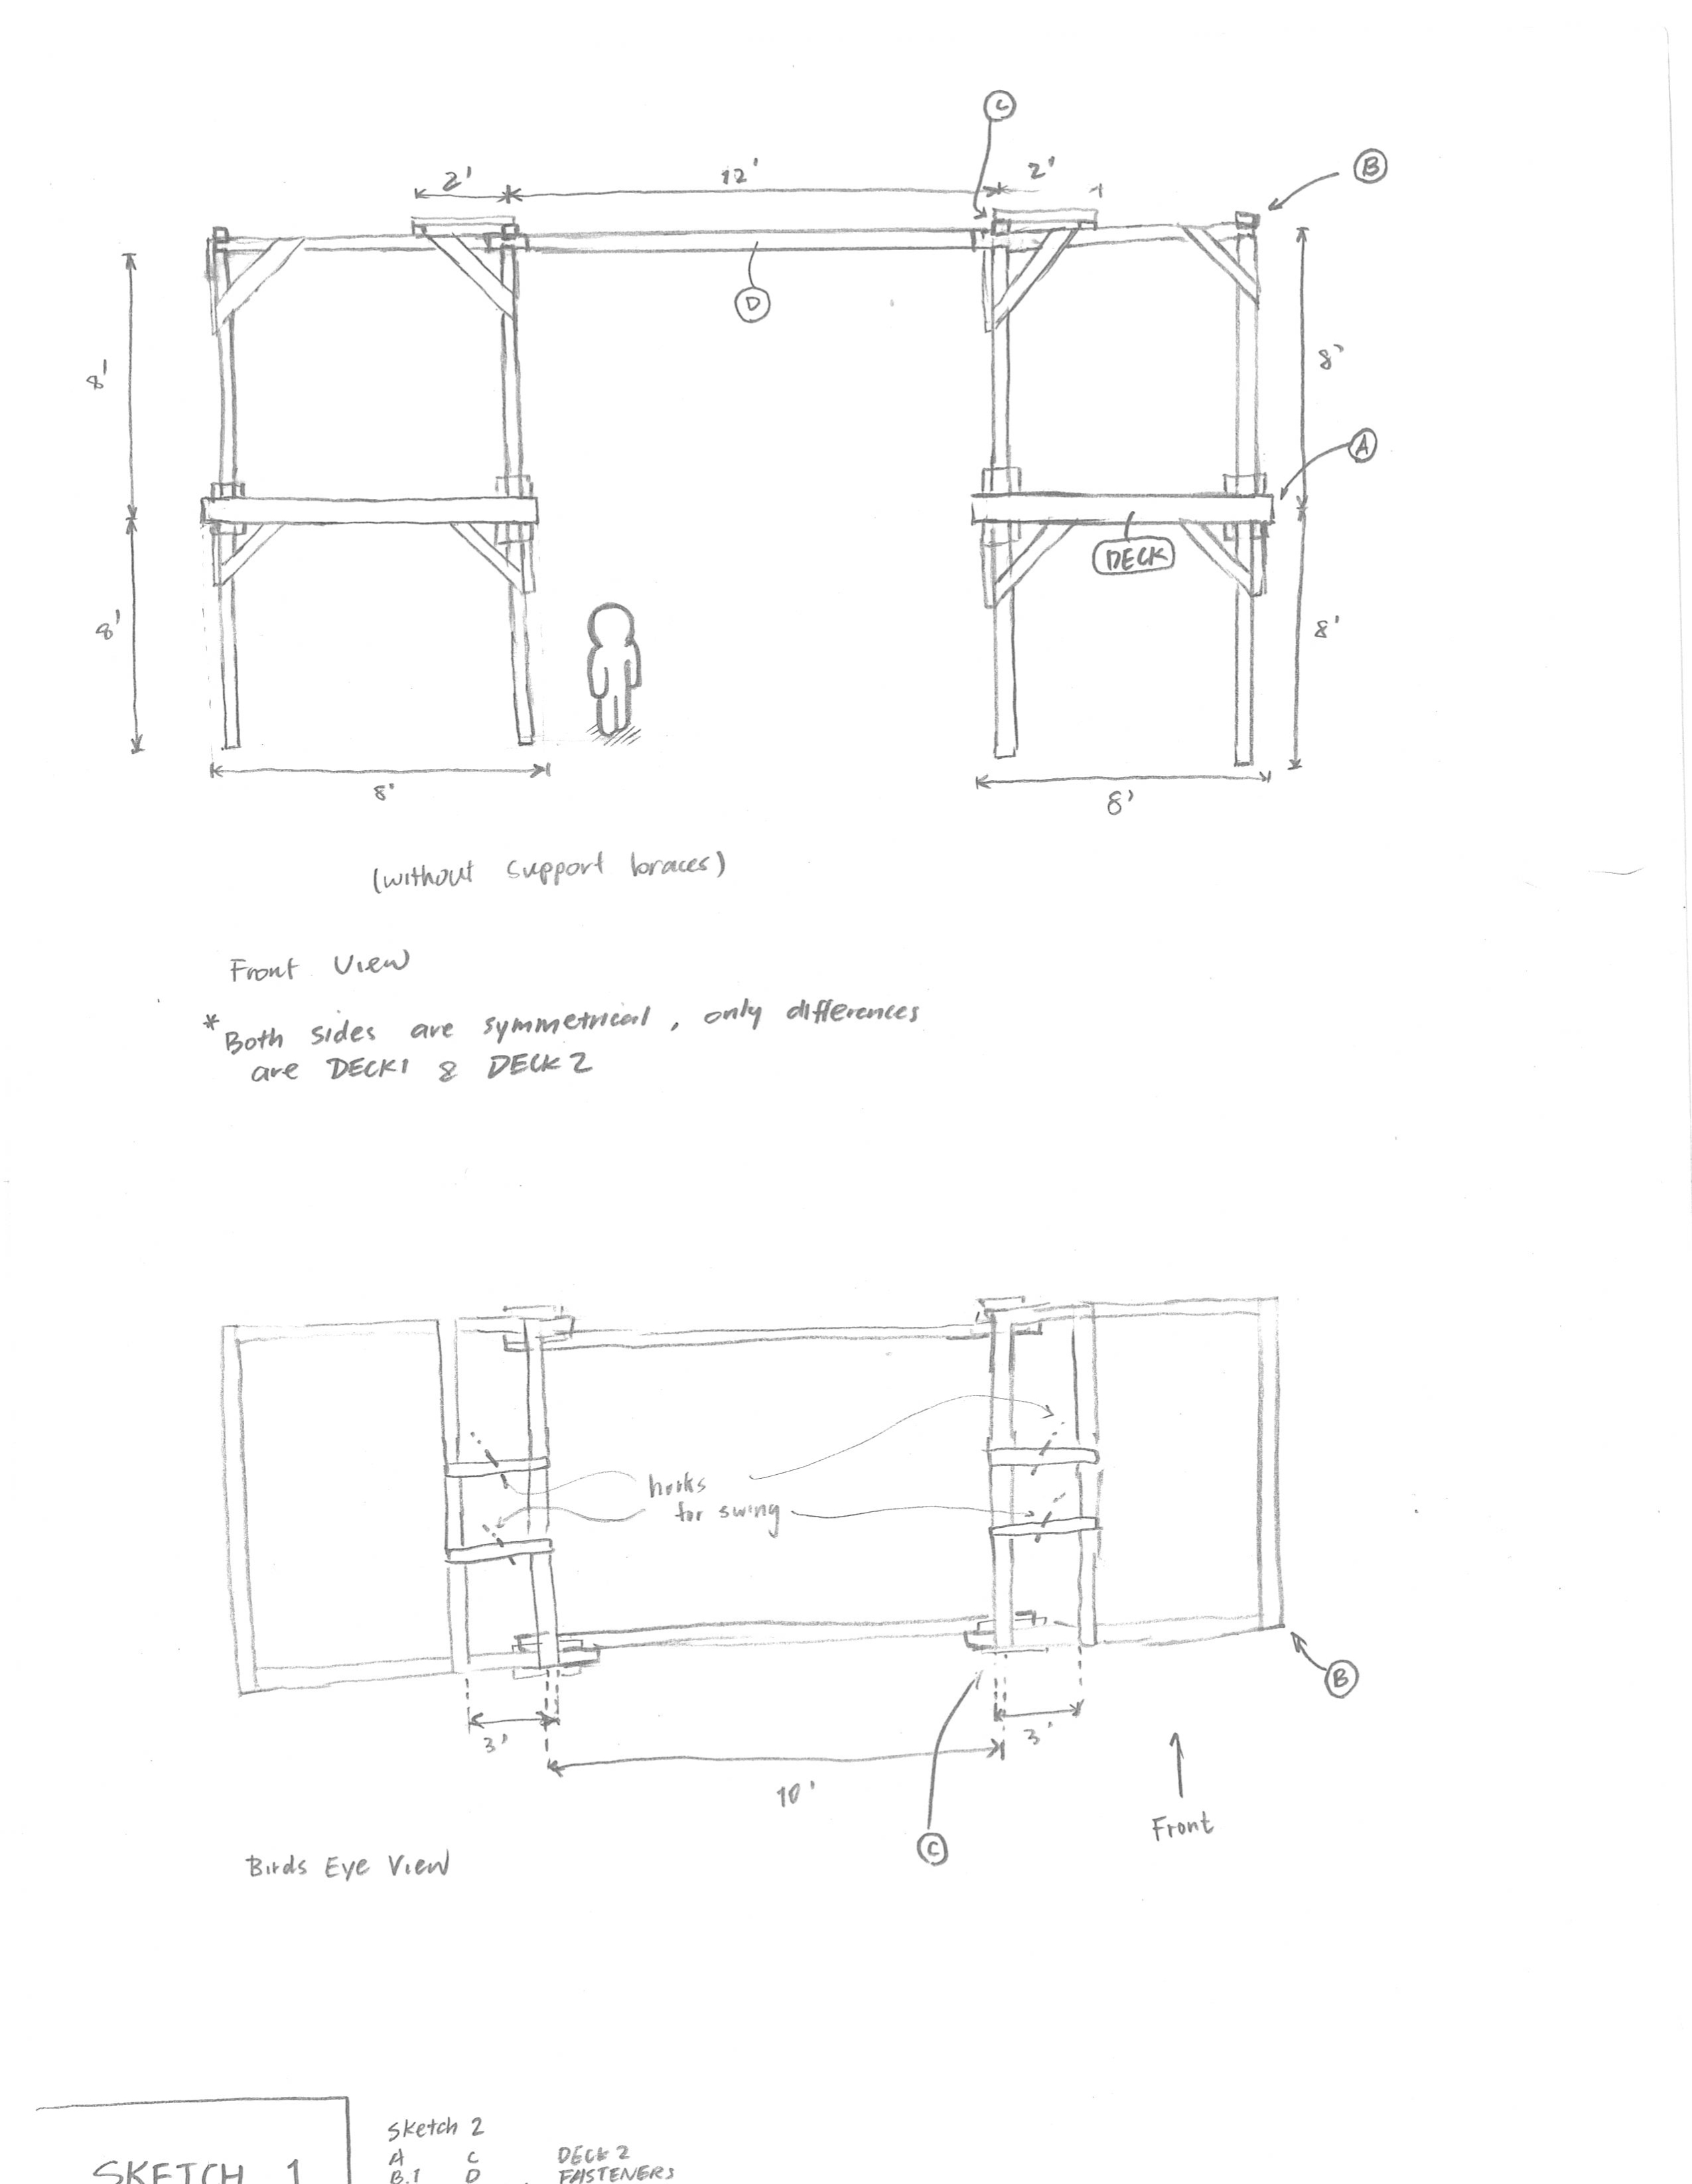 C
B
2'
12'
2'
D
8'
8'
A
DECK
8'
8'
8'
8'
(without support braces)
Front View
*Both sides are symmetrical, only differences
are DECK1 & DECK2
hooks
for swing
B
3'
3'
10'
C
Front
Birds Eye View
Sketch 2
A C DECK 2
SKETCH 1
B.1 D FASTENERS